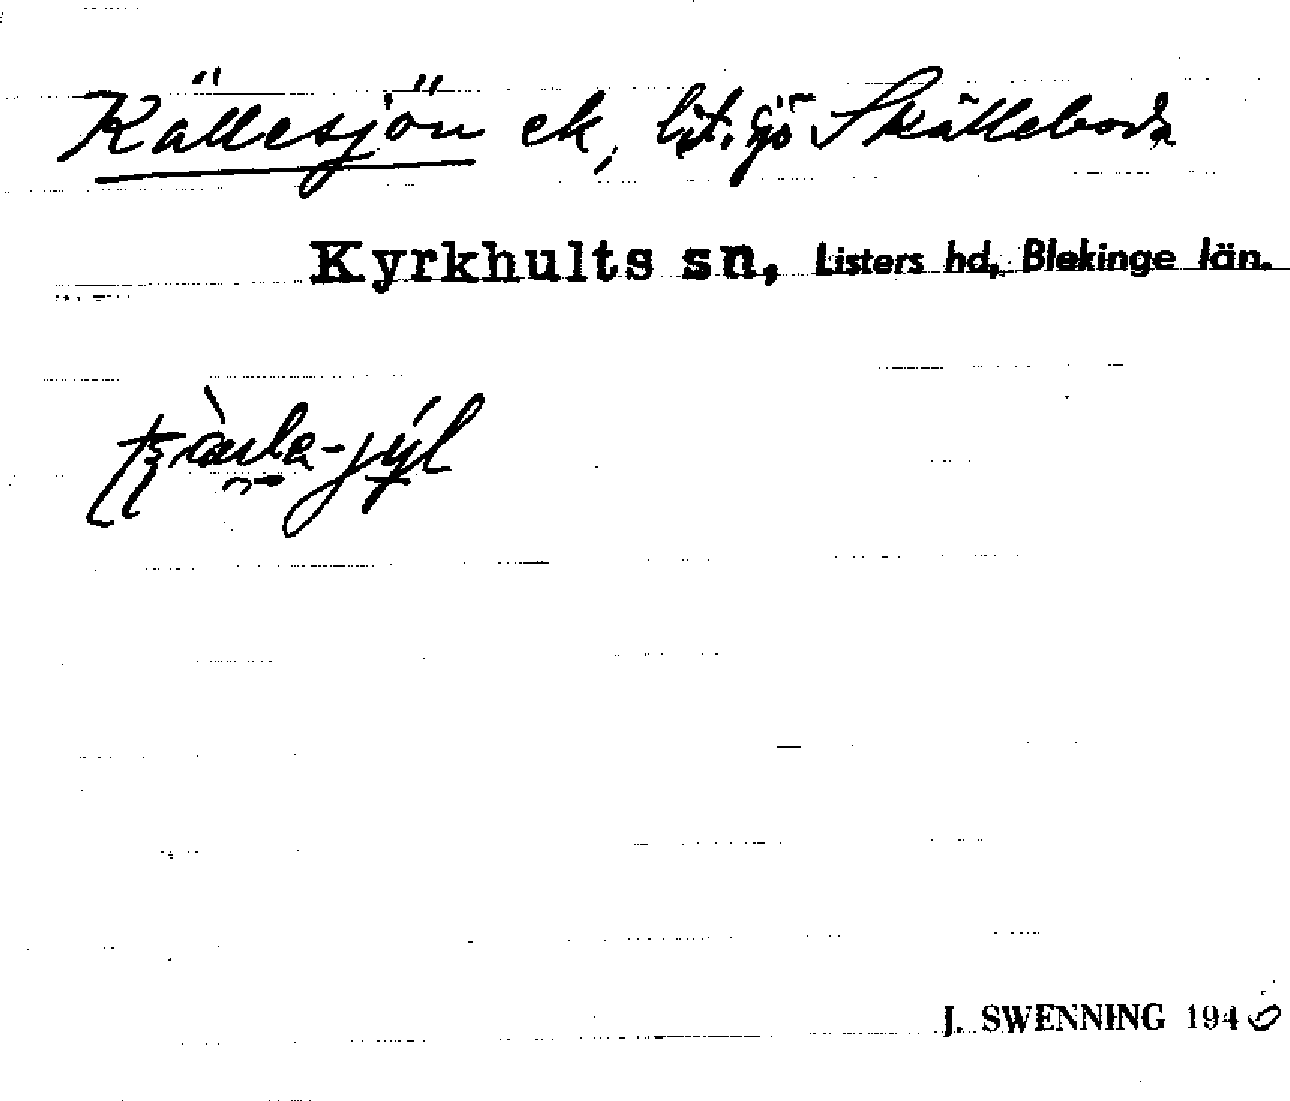 Källesjön ek, lit. sjö Skälleboda
Kyrkhults sn, Listers hd, Blekinge län.
J. SWENNING 1940